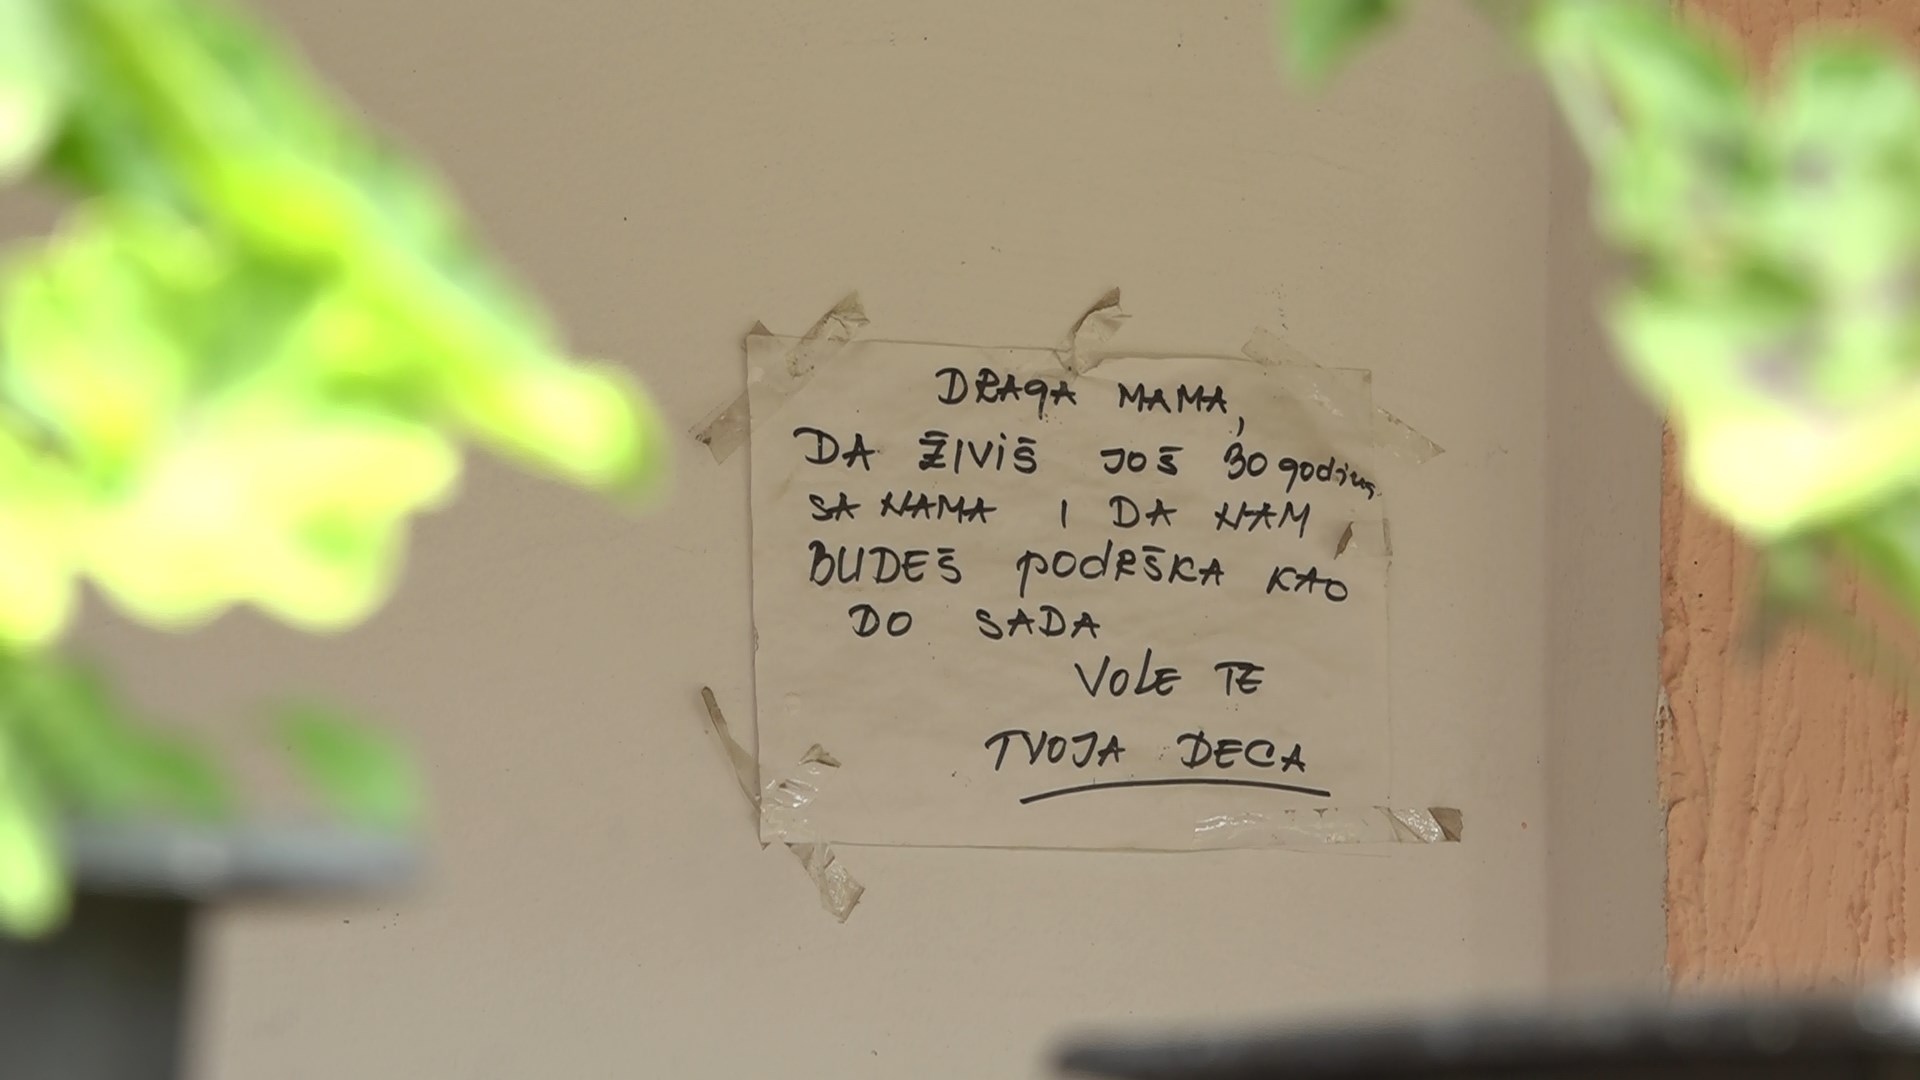 DRAGA MAMA,
DA ŽIVIŠ JOŠ 30 godina
SA NAMA I DA NAM
BUDEŠ PODRŠKA KAO
DO SADA
VOLE TE
TVOJA DECA